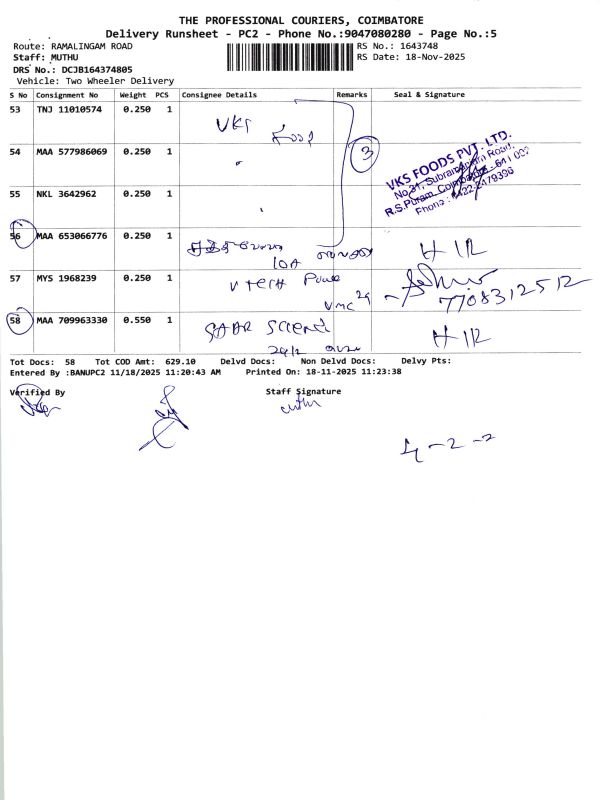 THE PROFESSIONAL COURIERS, COIMBATORE
Delivery Runsheet - PC2 - Phone No.:9047080280 - Page No.:5
Route: RAMALINGAM ROAD
RS No.: 1643748
Staff: MUTHU
RS Date: 18-Nov-2025
DRS No.: DCJB164374805
Vehicle: Two Wheeler Delivery
S No Consignment No Weight PCS Consignee Details Remarks Seal & Signature
53 TNJ 11010574 0.250 1 VKS
3
54 MAA 577986069 0.250 1
VKS FOODS PVT. LTD.
No.31, Subramaniam Road,
R.S.Puram, Coimbatore - 641 002
Phone : 0422-2479396
55 NKL 3642962 0.250 1
56 MAA 653066776 0.250 1
10A
57 MYS 1968239 0.250 1 V tech
7708312512
58 MAA 709963330 0.550 1
Tot Docs: 58 Tot COD Amt: 629.10 Delvd Docs: Non Delvd Docs: Delvy Pts:
Entered By :BANUPC2 11/18/2025 11:20:43 AM Printed On: 18-11-2025 11:23:38
Verified By Staff Signature
4 - 2 - 2